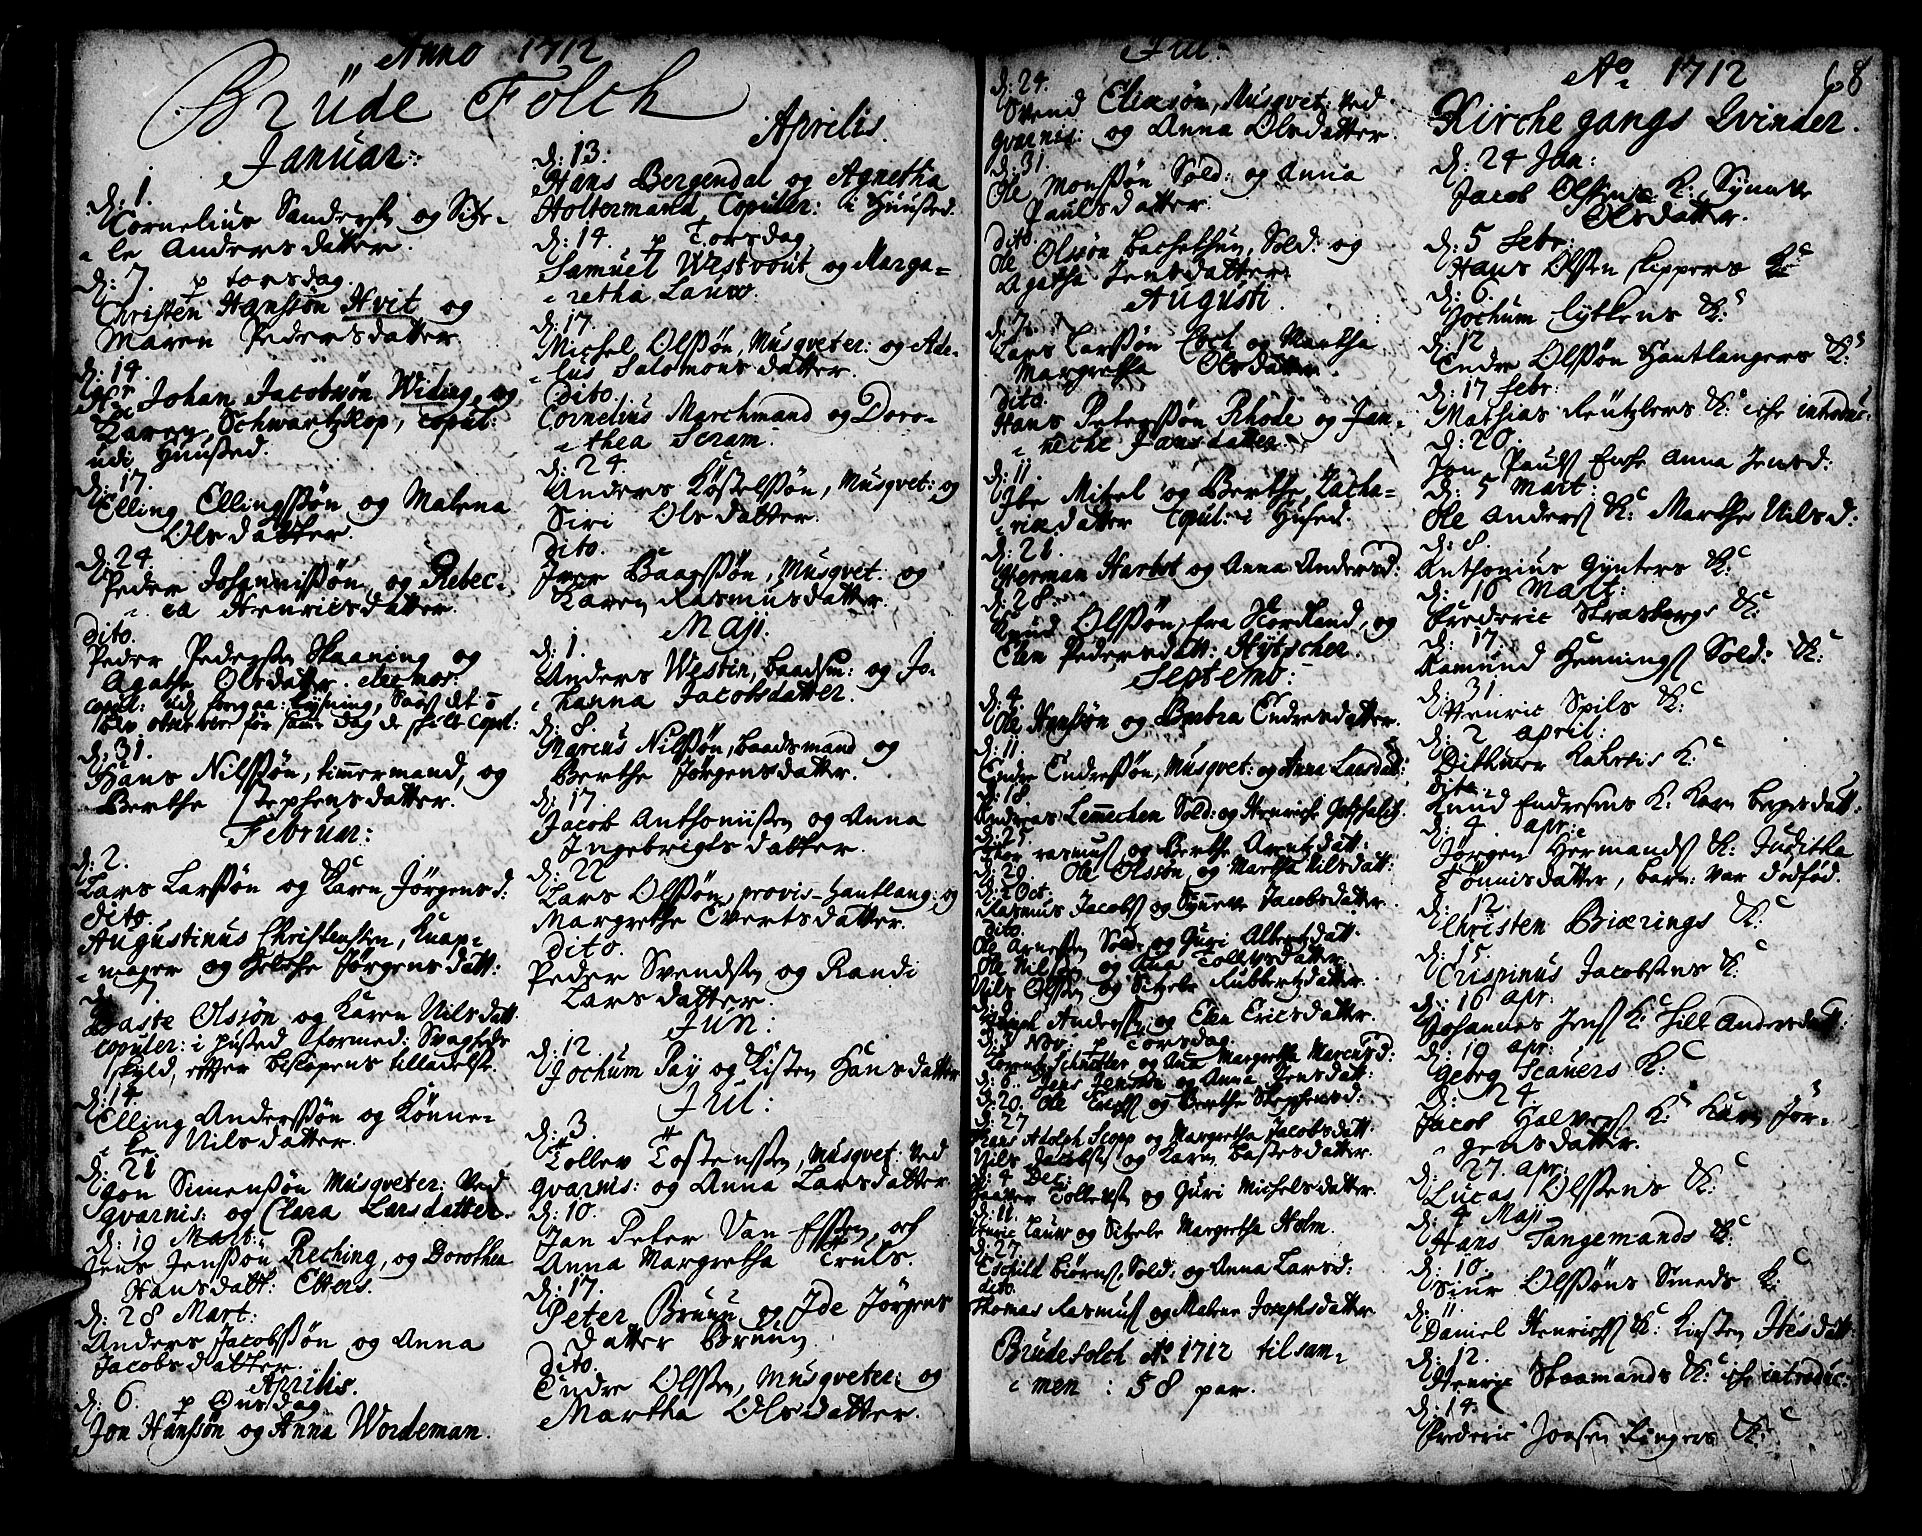 Anno 1712
Brüde Folch
Januar:
d: 1.
Cornelius Sanderss: og Sitze=
le Andersdatter.
d: 7. p torsdag
Christen Hanssøn Hvit og
Maren Pedersdatter.
d: 14.
Johan Jacobsøn Widing, og
Karen Schwartzkop, copul:
udi Huused.
d: 17.
Elling Ellingssøn og Malena
Olsdatter.
d: 24.
Peder Johannissøn, og Rebec=
ca Henricsdatter.
dito.
Peder Pederssen Skaaning og
Agathe Olsdatter.
d: 31.
Hans Nilssøn, timmermand, og
Berthe Stephensdatter.
Februar:
d: 2.
Lars Larssøn og Karn Jørgensd:
dito.
Augustinus Christenssen, Knap=
mager og Jørgensdatt:
d: 7
Baste Olssøn og Karen Nilsdatt:
copuler: i Huused formed: Svagheds
skyld, efter biskopens tilladelse.
d: 14.
Elling Anderssøn og Kønne=
ke Nilsdatter.
d: 21
Jon Simenssøn Musqveter: ved
gvarnis: og Clara Larsdatter.
d: 19 Mart:
Jens Jenssøn Reching, og Dorothea
Hansdatt: Etters.
d: 28 Mart:
Anders Jacobssøn og Anna
Jacobsdatter.
Aprilis.
d: 6. p Onsdag
Jon Hanssøn og Anna Wordeman.
Aprilis.
d: 13.
Hans Bergendal og Agnetha
Holtermand, Copuler: i Huused.
d: 14. p Torsdag
Samuel Westvout og Marga=
retha Lauw.
d: 17.
Michel Olssøn, Musqveter: og Ade=
lus Salomonsdatter.
dito.
Cornelius Marchmand og Doro=
thea Scram.
d: 24.
Anders Køstelssøn, Musqvet: og
Siri Olsdatter.
dito.
Iver Baagssøn, Musqvet: og
Karen Rasmusdatter.
Maji.
d: 1.
Anders Westin, baadsm: og Jo=
hanna Jacobsdatter.
d: 8.
Marcus Nilssøn, baadsmand og
Berthe Jørgensdatter.
d: 17.
Jacob Anthonissen og Anna
Ingebrigtsdatter.
d: 22
Lars Olssøn, provis-Hantlang: og
Margrethe Evertsdatter.
dito.
Peder Svendss: og Randi
Larsdatter.
Jun:
d: 12
Jochum Pay og Kisten Hansdatter
Jul:
d: 3.
Tollev Tostenssen, Musqvet: ved
gvarnis: og Anna Larsdatter
d: 10.
Jan Peter Van Essen, och
Anna Margretha Truls.
d: 17.
Peter Bruun og Ide Jørgens
datter Bruun
dito.
Endre Olssen, Musqveter: og
Martha Olsdatter.
Jul:
d: 24.
Svend Eliasøn, Musqvet: ved
gvarnis: og Anna Olsdatter.
d: 31.
Ole Monssøn Sold: og Anna
Paulsdatter.
dito
Ole Olssøn Sold: og
Agatha Jensdatter.
Augusti
d: 7.
Lars Larssøn Coch og Martha
Margretha Olsdatter.
dito
Hans Peterssøn Rhode og Jan=
neche Jansdatter.
d: 11.
Ibe Mitzel og Berthe Zacha=
riædatter Copul: i Hused.
d: 21
Herman Harbot og Anna Andersd:
d: 28.
Knud Olssøn, fra Hordland, og
Elen Pedersdatt: Hytscher.
Septemb:
d: 4
Ole Hanssøn og Barbra Endresdatter.
d: 11
Endre Endressøn, Musqvet: og Anna Larsdat:
d: 18
Andreas Lemechen Sold: og Henriche
d: 25
rasmus og Berthe Arentzdatt:
d: 29. Ole Olssøn og Martha Nilsdatt:
d: 2 Oct.
Rasmus Jacobs og Synneve Jacobsdatter.
dito
Ole Arnessen Sold: og Guri Albertzdatt:
Ole Nilssen og Ana Tollevsdatter.
Nils Olssen og Sitzele Lubbertzdatter.
Anderss: og Elen Ericsdatter.
d: 3 Nov: p Torsdag
Lorentz Schnitler og Ana Margretha Marcusd:
d: 6. Jens Jenssøn og Anna Jensdatt:
d: 20. Ole og Berthe Stephensd:
d: 27
Hans Adolph Scopp og Margretha Jacobsdatt.
Nils Jacobss: og Karn Bastesdatter.
d: 4 Dec:
Tollevss: og Guri Michelsdatter.
d: 11.
Henric Lauw og Sitzele Margretha Holm.
d: 27.
Eschild Biørns, Sold: og Anna Larsd:
dito
Thomas Rasmuss og Malene Josephsdatter
Brudefolch Ao 1712 tilsam=
men : 58 par.
Ao 1712 68
Kirchegangs Qvinder.
d: 24 Jan:
Jacob Olssens K: Synneve
Olsdatter.
d: 5 Febr:
Hans Olssen skippers K:
d: 6.
Jochum Lytkens K:
d: 12
Endre Olssøn Hantlangers K:
d: 17 Febr:
Mathias Reutzlers K: iche introduc:
d: 20.
Jon Pauls Enche Anna Jensd:
d: 5 Mart:
Ole Anders K: Marthe Nilsd:
d: 8.
Anthonius Gynters K:
d: 10 Mart:
Frederic Strasbergs K:
d: 17.
Ramund Hennings Sold: K:
d: 31.
Henric Spils K:
d: 2 April:
Dithmer Kahrsis K:
dito.
Knud Endresens K: Karn bergsdatt:
d: 4. apr:
Jørgen Hermands K: Juditha
Tønnisdatter, barn: var dødfød.
d: 12.
Christen Biærings K:
d: 15.
Crispinus Jacobssens K:
d: 16 apr:
Johannes Jens K: Sill Andersdatt:
d: 19 apr:
Georg Scauers K:
d: 24
Jacob Halvors K: Karn Jør=
gensdatter.
d: 27 apr:
Lucas Olssens K:
d: 4 Maji
Hans Tangemands K:
d: 10.
Siur Olssøns Smeds K:
d: 11
Daniel Henrichs K: Kirsten Ifvesdatt:
d: 12.
Henric Staamands K: iche introduc:
d: 14.
Frederic Joasen Ringers K: